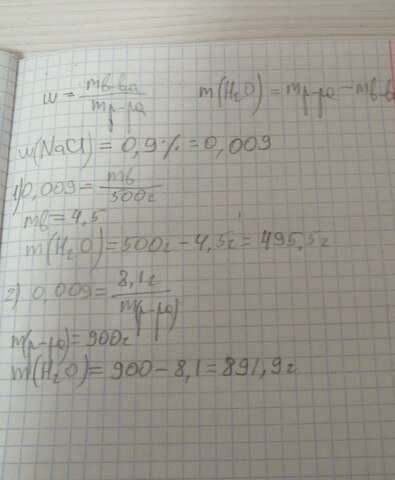 w = mв-ва / mр-ра
m(H₂O) = mр-ра - mв-в
w(NaCl) = 0,9% = 0,009
1) 0,009 = mв / 500г
mв = 4,5
m(H₂O) = 500г - 4,5г = 495,5г
2) 0,009 = 8,1г / mр-ра)
m(р-ра) = 900г
m(H₂O) = 900 - 8,1 = 891,9г